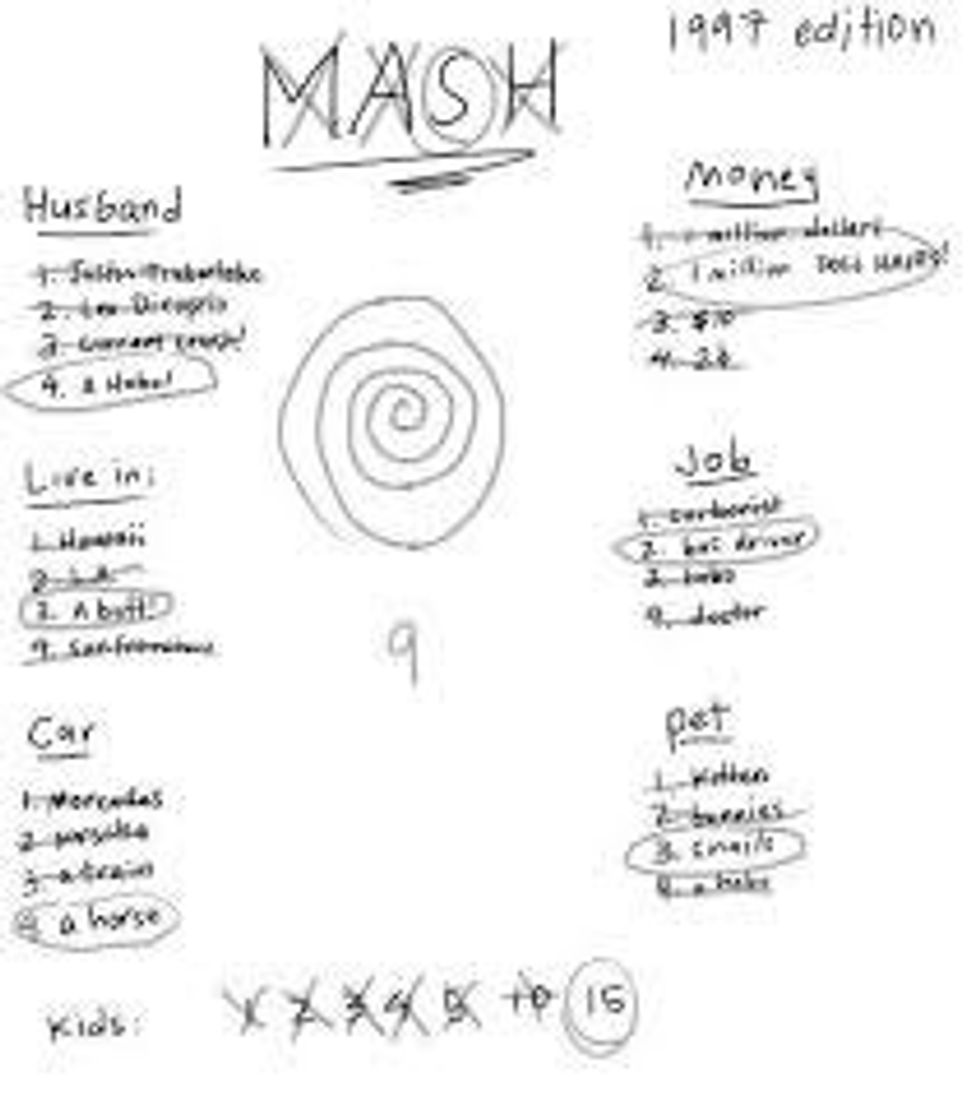 1997 edition
MASH
Husband
1. Justin Timberlake
2. Leo Dicaprio
3. current crush!
4. a Hobo!
Live in:
1. Hawaii
2. L.A.
3. A butt!
4. San Francisco
Car
1. Mercedes
2.
3. a train
4. a horse
Kids:
1 2 3 4 5 10 15
9
Money
1. 1 million dollars
2. 1 million
3. $10
4. 2¢
Job
1.
2. bus driver
3. hobo
4. doctor
pet
1. kitten
2. bunnies
3. snails
4. a hobo